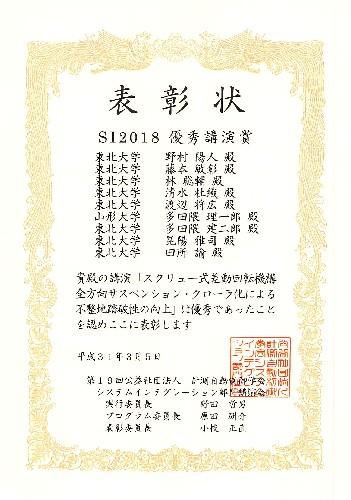 表彰状
SI2018 優秀講演賞
東北大学 野村 陽人 殿
東北大学 藤本 敏彰 殿
東北大学 林 聡輔 殿
東北大学 清水 杜織 殿
東北大学 渡辺 将広 殿
山形大学 多田隈 理一郎 殿
東北大学 多田隈 建二郎 殿
東北大学 昆陽 雅司 殿
東北大学 田所 諭 殿
貴殿の講演「スクリュー式差動回転機構
全方向サスペンション・クローラ化による
不整地踏破性の向上」は優秀であったこと
を認めここに表彰します
平成31年3月5日
第19回公益社団法人 計測自動制御学会
システムインテグレーション部門講演会
実行委員長 野田 哲男
プログラム委員長 原田 研介
表彰委員長 小枝 正直